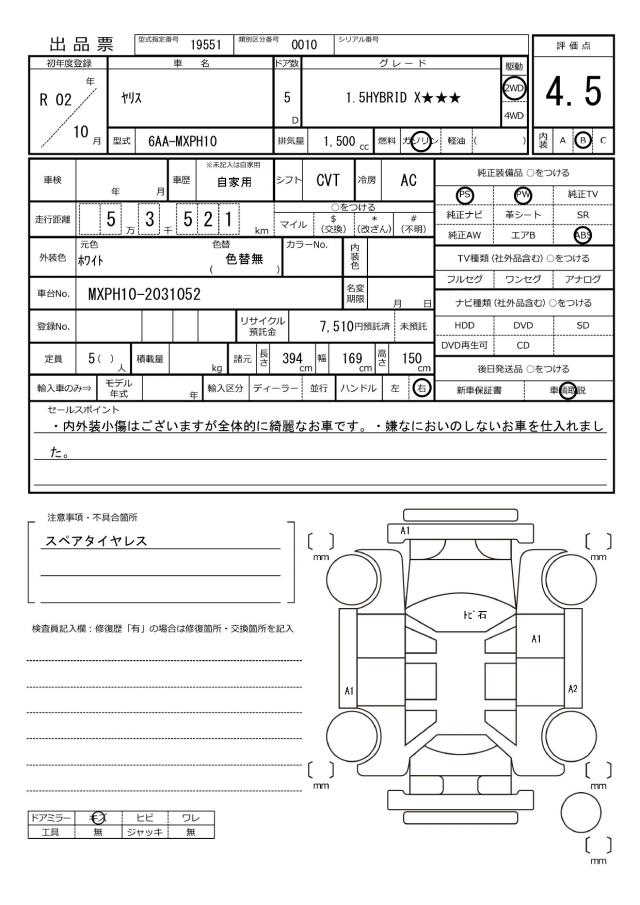 出品票 型式指定番号 19551 類別区分番号 0010 シリアル番号
評価点
4.5
内装 A B C
初年度登録 車名 ドア数 グレード 駆動
R 02 年 ヤリス 5 D 1.5HYBRID X★★★ 2WD
10 月 4WD
型式 6AA-MXPH10 排気量 1,500 cc 燃料 ガソリン 軽油 ( )
車検 年 月 車歴 ※未記入は自家用 自家用 シフト CVT 冷房 AC
走行距離 5 万 3 千 5 2 1 km
○をつける
マイル $ (交換) * (改ざん) # (不明)
外装色 元色 ホワイト 色替 ( 色替無 ) カラーNo. 内装色
車台No. MXPH10-2031052 名変期限 月 日
登録No. リサイクル預託金 7,510円預託済 未預託
定員 5 ( ) 人 積載量 kg 諸元 長さ 394 cm 幅 169 cm 高さ 150 cm
輸入車のみ⇒ モデル年式 年 輸入区分 ディーラー 並行 ハンドル 左 右
純正装備品 ○をつける
PS PW 純正TV
純正ナビ 革シート SR
純正AW エアB ABS
TV種類 (社外品含む) ○をつける
フルセグ ワンセグ アナログ
ナビ種類 (社外品含む) ○をつける
HDD DVD SD
DVD再生可 CD
後日発送品 ○をつける
新車保証書 車輌取説
セールスポイント
・内外装小傷はございますが全体的に綺麗なお車です。・嫌なにおいのしないお車を仕入れまし
た。
注意事項・不具合箇所
スペアタイヤレス
検査員記入欄：修復歴「有」の場合は修復箇所・交換箇所を記入
ドアミラー キズ ヒビ ワレ
工具 無 ジャッキ 無
A1
[ ] mm
[ ] mm
トビ石
A1
A1
A2
[ ] mm
[ ] mm
[ ] mm